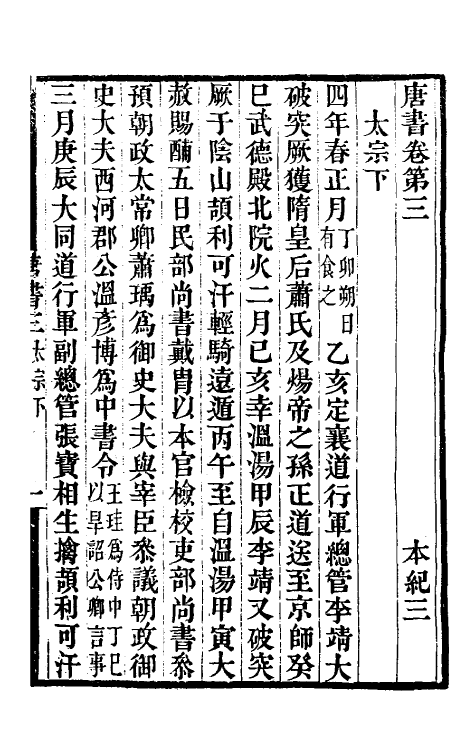 唐書卷第三 本紀三
太宗下
四年春正月丁卯朔日有食之乙亥定襄道行軍總管李靖大
破突厥獲隋皇后蕭氏及煬帝之孫正道送至京師癸
巳武德殿北院火二月己亥幸溫湯甲辰李靖又破突
厥于陰山頡利可汗輕騎遠遁丙午至自溫湯甲寅大
赦賜酺五日民部尚書戴冑以本官檢校吏部尚書叅
預朝政太常卿蕭瑀爲御史大夫與宰臣叅議朝政御
史大夫西河郡公溫彥博爲中書令王珪爲侍中丁巳以旱詔公卿言事
三月庚辰大同道行軍副總管張寶相生擒頡利可汗
唐書三 太宗下 一